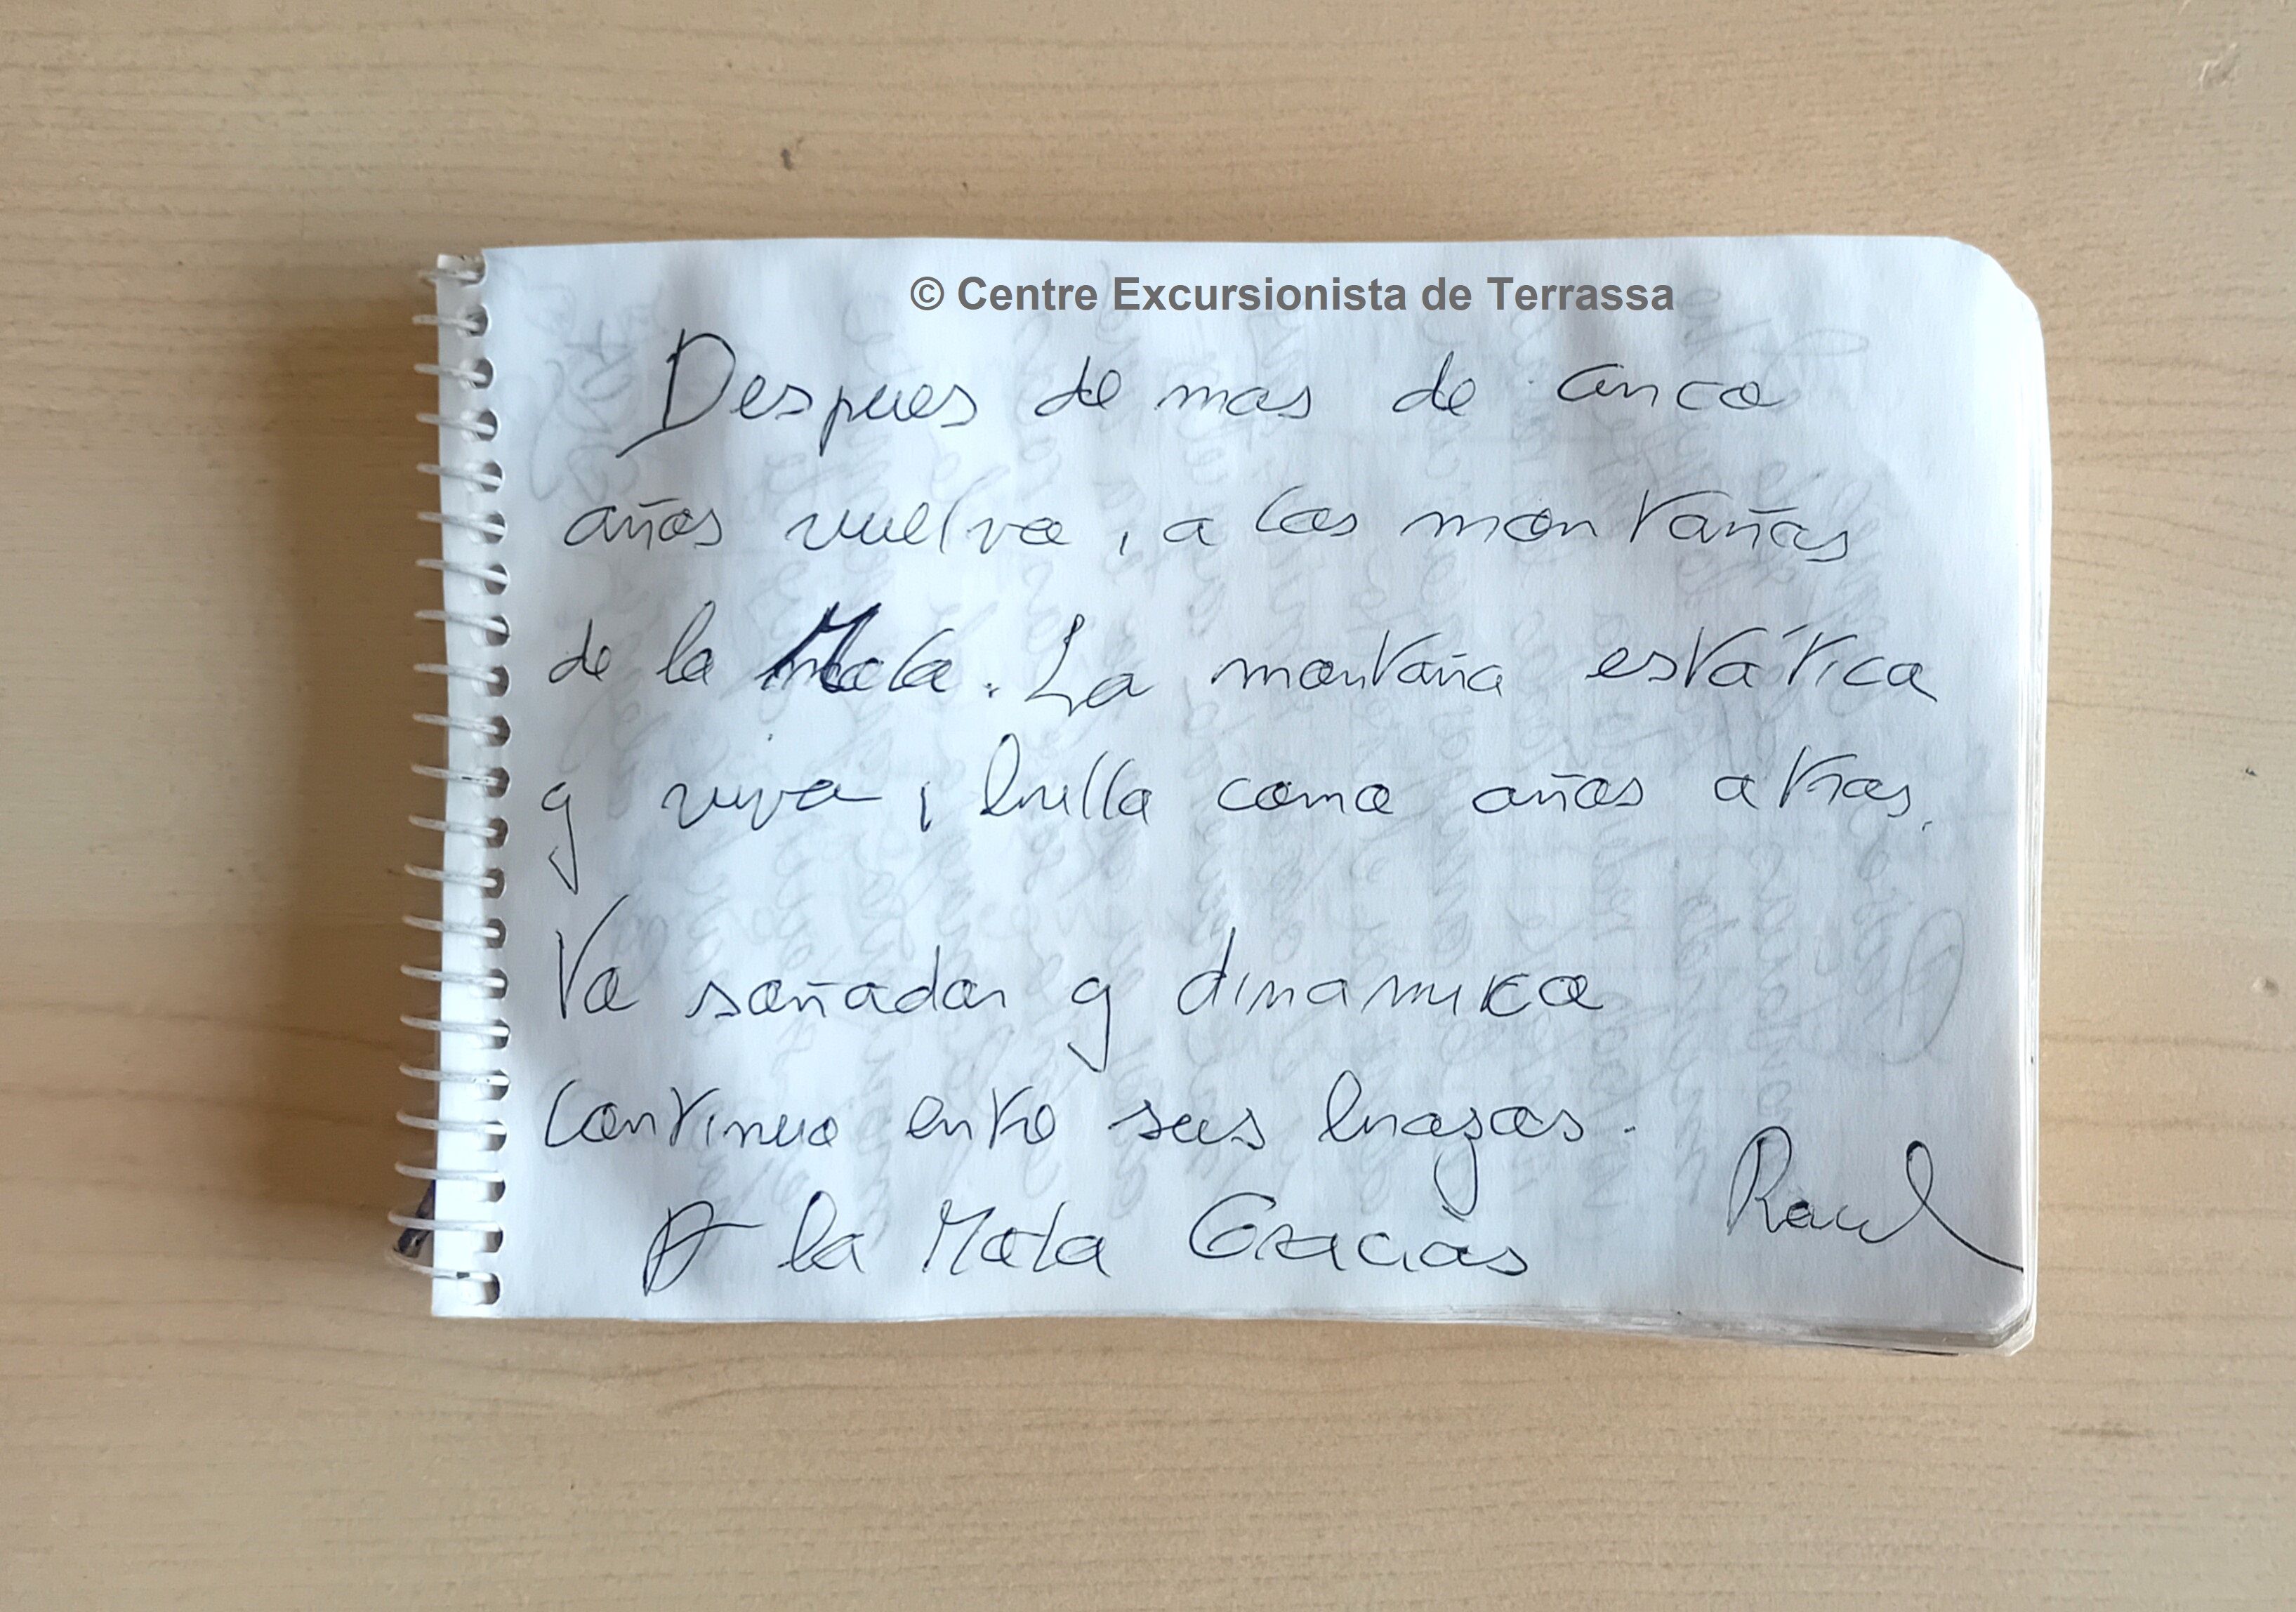 © Centre Excursionista de Terrassa
Despues de mas de cinco
años vuelvo, a las montañas
de la Mola. La montaña estática
y viva, brilla como años atras.
Yo soñador y dinamico
continuo entre sus brazos.
A la Mola Gracias
Raul